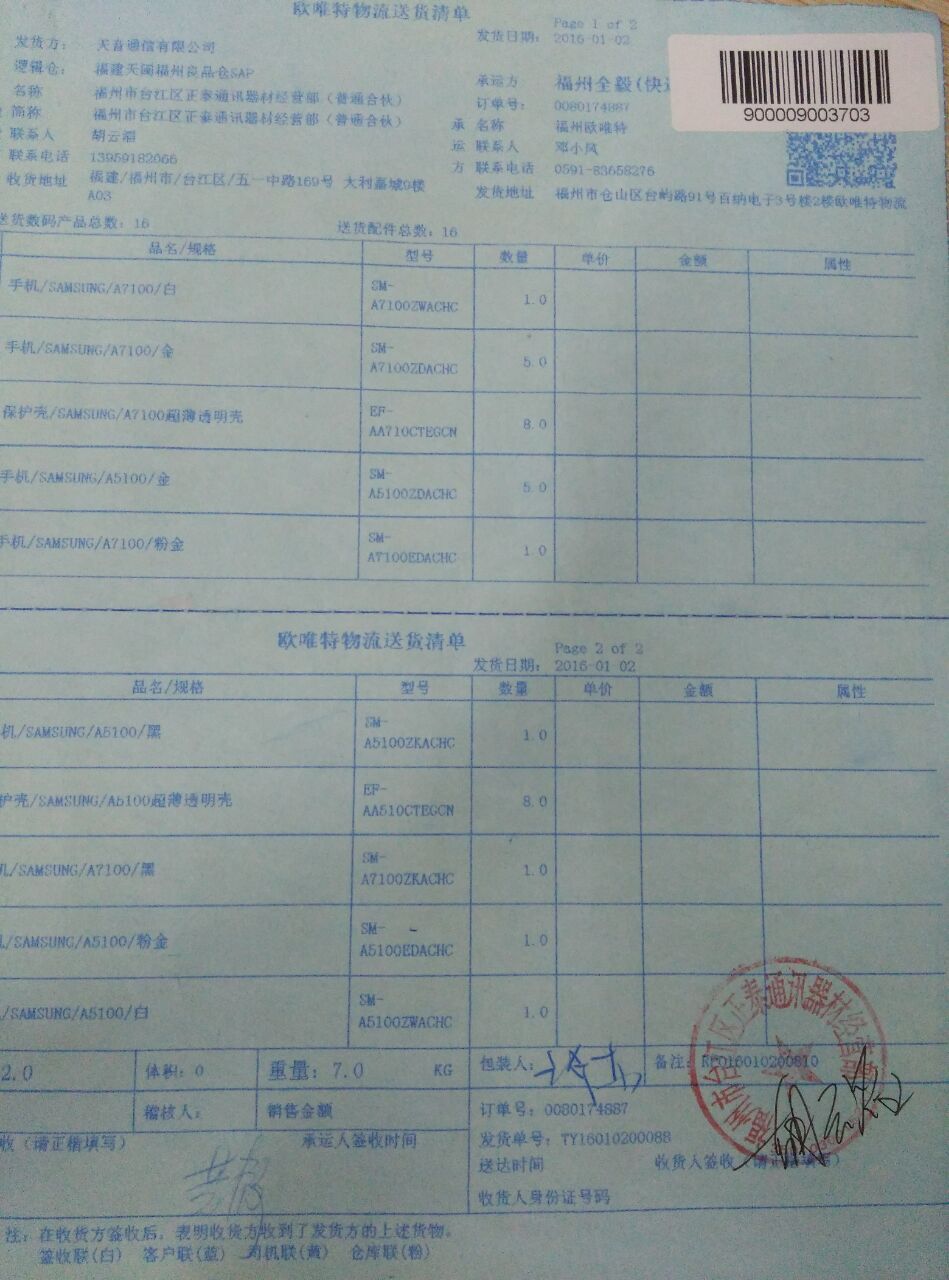 欧唯特物流送货清单
Page 1 of 2
发货方: 天音通信有限公司
发货日期: 2016-01-02
逻辑仓: 福建天闽福州良品仓SAP
承运方 福州全毅(快
900009003703
名称 福州市台江区正泰通讯器材经营部(普通合伙)
订单号: 0080174887
简称 福州市台江区正泰通讯器材经营部(普通合伙)
承 名称 福州欧唯特
联系人 胡云
运 联系人 邓小凤
联系电话 13959182066
方 联系电话 0591-83658276
收货地址 福建/福州市/台江区/五一中路169号 大利嘉城9楼
A03
发货地址 福州市仓山区台屿路91号百纳电子3号楼2楼欧唯特物流
送货数码产品总数: 16 送货配件总数: 16
品名/规格 型号 数量 单价 金额 属性
手机/SAMSUNG/A7100/白 SM-
A7100ZWACHC 1.0
手机/SAMSUNG/A7100/金 SM-
A7100ZDACHC 5.0
保护壳/SAMSUNG/A7100超薄透明壳 EF-
AA710CTEGCN 8.0
手机/SAMSUNG/A5100/金 SM-
A5100ZDACHC 5.0
手机/SAMSUNG/A7100/粉金 SM-
A7100EDACHC 1.0
欧唯特物流送货清单
Page 2 of 2
发货日期: 2016-01-02
品名/规格 型号 数量 单价 金额 属性
机/SAMSUNG/A5100/黑 SM-
A5100ZKACHC 1.0
护壳/SAMSUNG/A5100超薄透明壳 EF-
AA510CTEGCN 8.0
机/SAMSUNG/A7100/黑 SM-
A7100ZKACHC 1.0
机/SAMSUNG/A5100/粉金 SM-
A5100EDACHC 1.0
/SAMSUNG/A5100/白 SM-
A5100ZWACHC 1.0
福州市台江区正泰通讯器材经营部
2.0 体积: 0 重量: 7.0 KG 包装人: 备注: RF016010200810
稽核人: 销售金额 订单号: 0080174887
收(请正楷填写) 承运人签收时间 发货单号: TY16010200088
送达时间 收货人签收(请正楷填写)
胡云
收货人身份证号码
注: 在收货方签收后, 表明收货方收到了发货方的上述货物。
签收联(白) 客户联(蓝) 司机联(黄) 仓库联(粉)